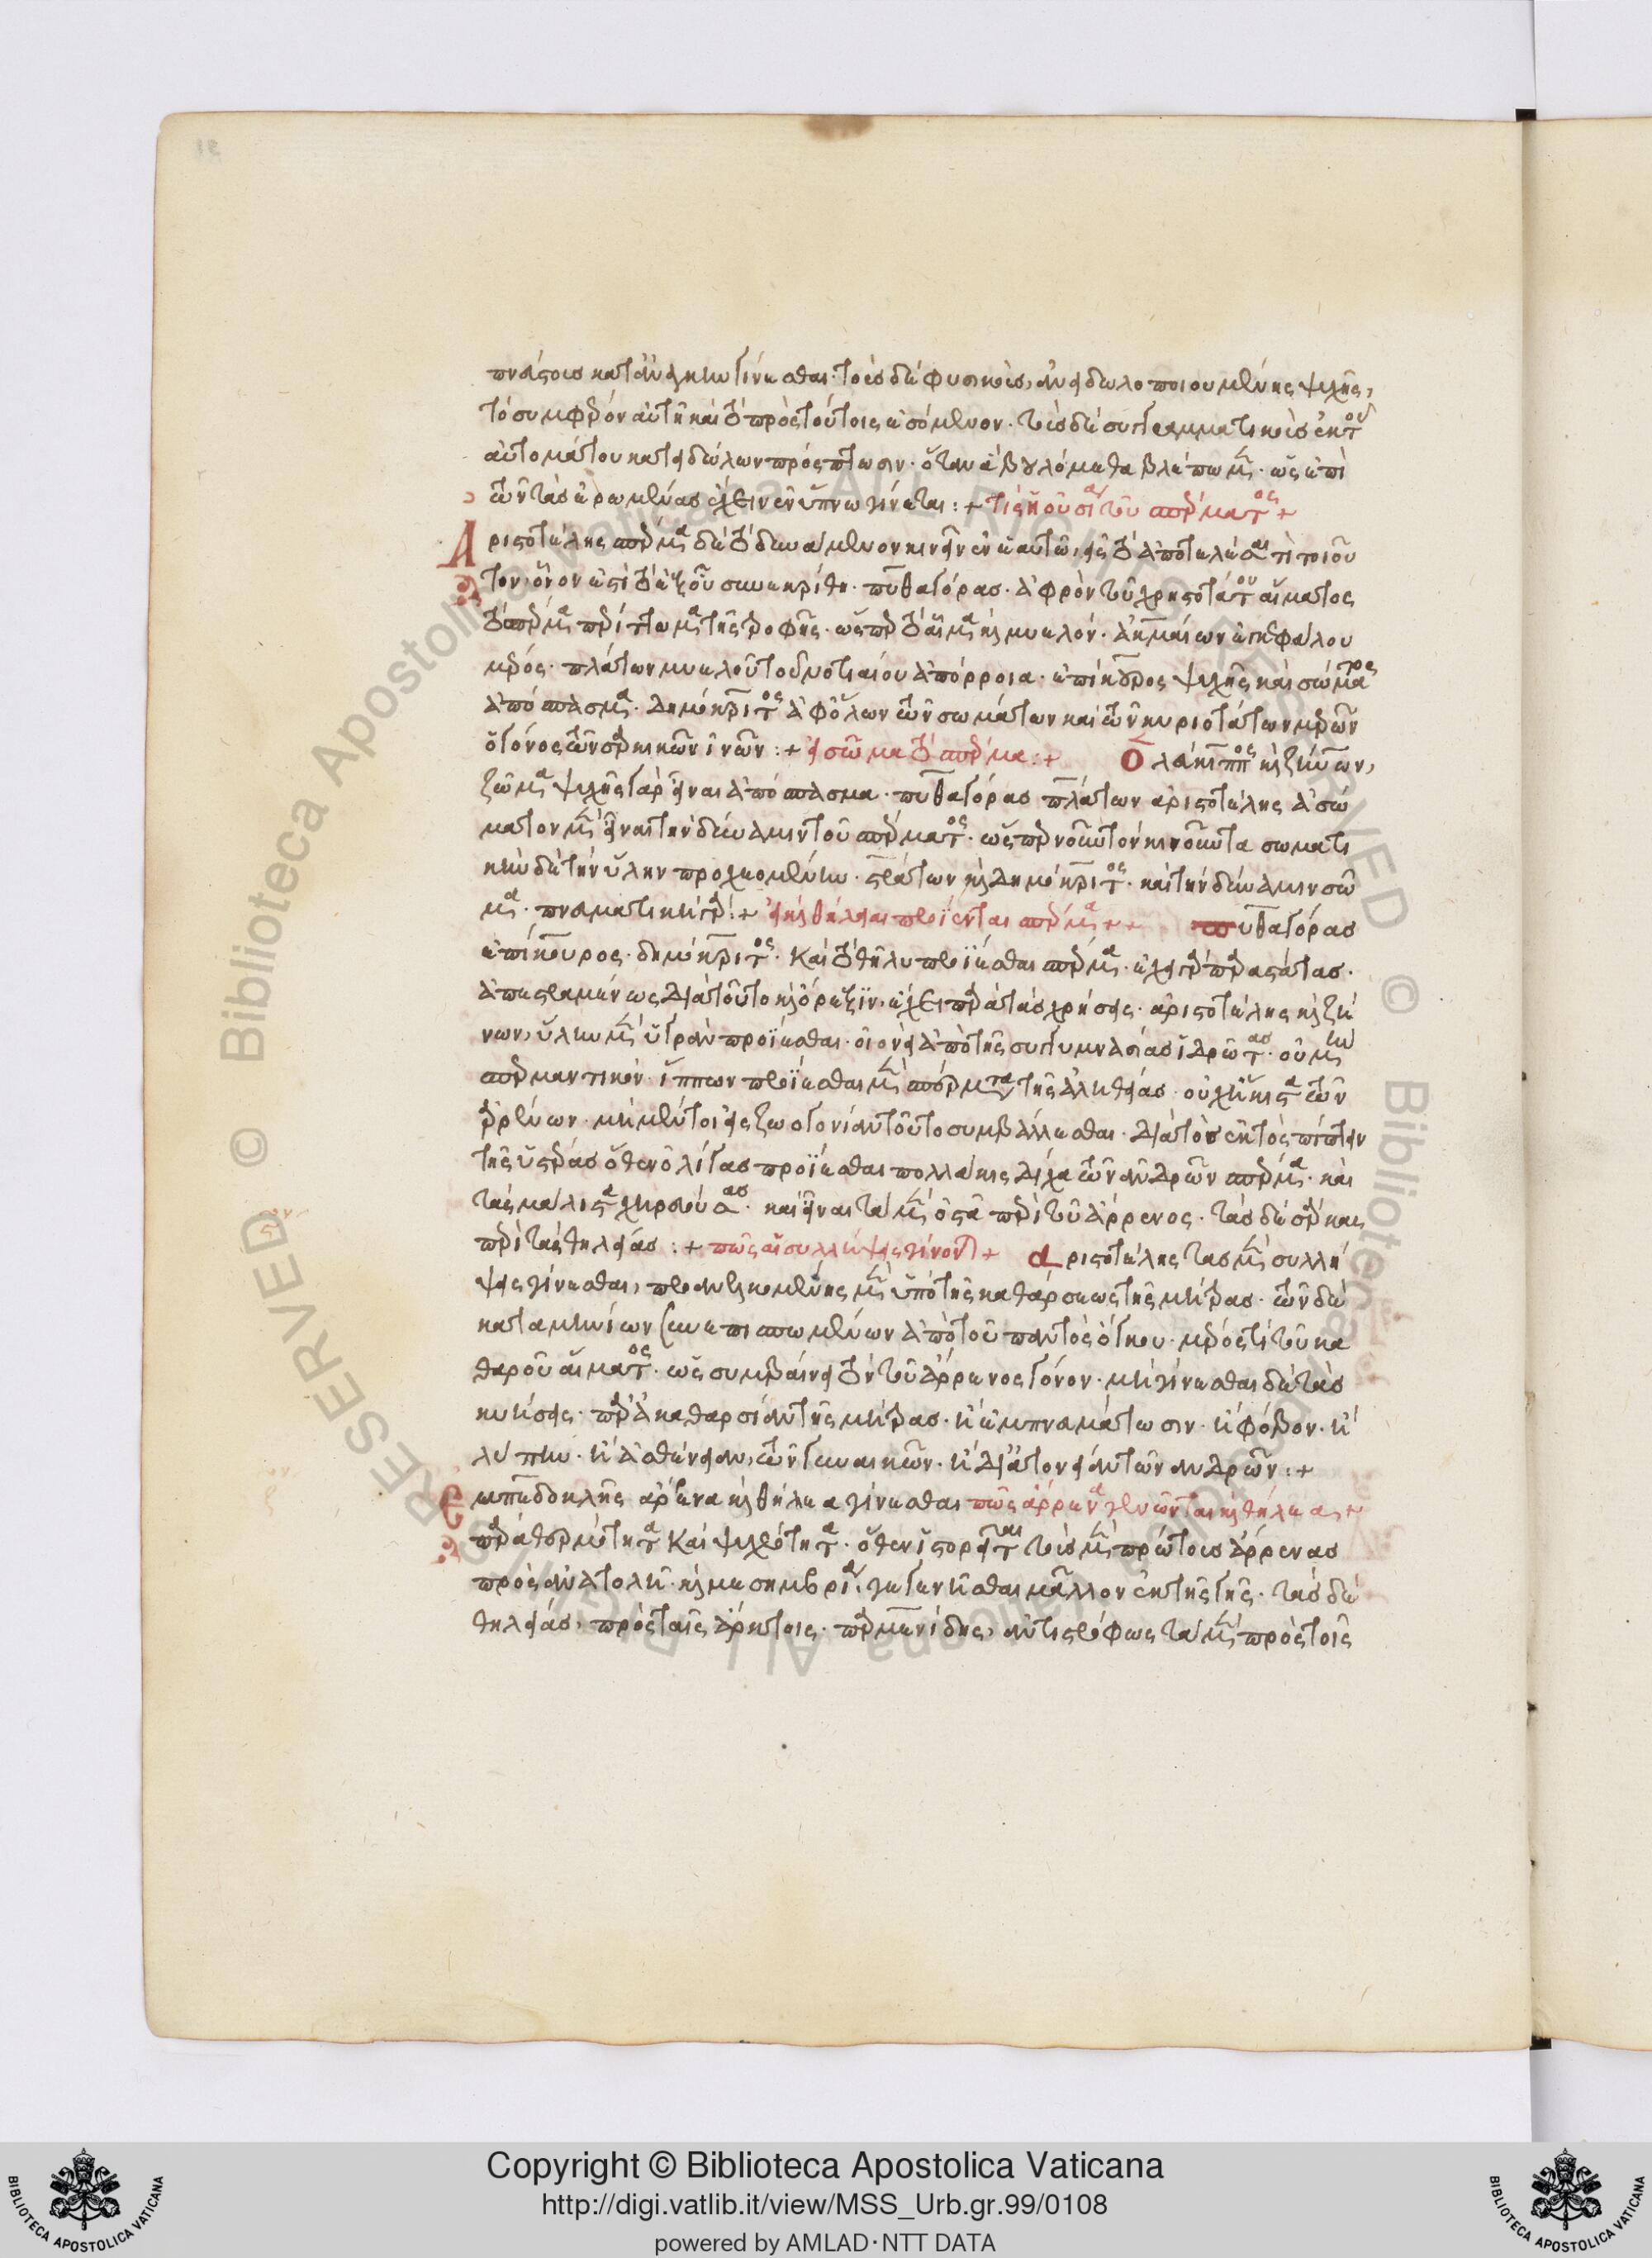 πνεύστους κατ' ἀνάγκην γίνεσθαι· τοὺς δὲ φυσικοὺς, ἀνειδωλοποιουμένης ψυχῆς,
τὸ συμφέρον αὐτῇ καὶ τὸ πρὸς τούτοις ἐσόμενον· τοὺς δὲ συγκραματικοὺς ἐκ τοῦ
αὐτομάτου κατ' εἰδώλων πρόσπτωσιν· ὅταν ἃ βουλόμεθα βλέπωμεν· ὡς ἐπὶ
τῶν τὰς ἐρωμένας ἔχειν ἐν ὕπνω γίνεται :+ τίς ἡ οὐσία τοῦ σπέρματος +
Αριστοτέλης σπέρμα δὲ τὸ δυνάμενον κινεῖν ἐν ἑαυτῶ, εἰς τὸ ἀποτελέσαι τι τοιοῦ
τον, οἷον ἐστὶ τὸ ἐξ οὗ συνεκρίθη· πυθαγόρας· ἀφρὸν τοῦ χρηστοτάτου αἵματος
τὸ σπέρμα περίττωμα τῆς τροφῆς· ὥσπερ τὸ αἷμα καὶ μυελόν· ἀλκμαίων ἐγκεφάλου
μέρος· πλάτων μυελοῦ τοῦ νωτιαίου ἀπόρροια· ἐπίκουρος ψυχῆς καὶ σώματος
ἀπόσπασμα· Δημόκριτος ἀφ' ὅλων τῶν σωμάτων καὶ τῶν κυριοτάτων μερῶν
ὁ γόνος τῶν σαρκικῶν ἰνῶν :+ εἰ σῶμα τὸ σπέρμα :+ Ολεύκιππος καὶ ζήνων,
ζῶμα ψυχῆς γὰρ εἶναι ἀπόσπασμα· πυθαγόρας πλάτων αριστοτέλης ἀσώ
ματον μὲν εἶναι τὴν δύναμιν τοῦ σπέρματος· ὥσπερ νοῦν τὸν κινοῦντα σωματι
κὴν δὲ τὴν ὕλην προχεομένην· στράτων καὶ Δημόκριτος· καὶ τὴν δύναμιν σῶ
μα· πνευματικὴ γάρ :+ εἰ καὶ θήλειαι προΐενται σπέρμα ++ πυθαγόρας
ἐπίκουρος· δημόκριτος· Καὶ τὸ θῆλυ προΐεσθαι σπέρμα· ἔχει γὰρ παραστάτας·
ἀπεστραμμένως Διὰ τοῦτο καὶ ὄρεξιν· ἔχει περὶ τὰς χρήσεις· αριστοτέλης καὶ ζή
νων, ὕλην μὲν ὑγρὰν προΐεσθαι· οἱονεὶ ἀπὸ τῆς συγγυμνασίας ἱδρῶτας· οὐ μὴν
σπερμαντικόν· ἵππων προΐεσθαι μὲν σπέρμα τῆς ἀληθείας· οὐχ ἥκιστα τῶν
ἀρρένων· μὴ μέντοι εἰς ζωογονίαν τοῦτο συμβάλλεσθαι· Διὰ τὸ ἐκτὸς πίπτειν
τῆς ὑστέρας ὅθεν ὀλίγας προΐεσθαι πολλάκις Δίχα τῶν ἀνδρῶν σπέρμα· καὶ
τὰς μάλιστα χηρευούσας· καὶ εἶναι τὰ μὲν ὀστᾶ περὶ τοῦ ἄρρενος· τὰς δὲ σάρκας
περὶ τὰς θηλείας :+ πῶς αἱ συλλήψεις γίνονται + αριστοτέλης τὰς μὲν συλλή
ψεις γίνεσθαι, προανελκομένης μὲν ὑπὸ τῆς καθάρσεως τῆς μήτρας· τῶν δὲ
καταμηνίων συνεπισπωμένων ἀπὸ τοῦ παντὸς ὄγκου· μέρος τι τοῦ κα
θαροῦ αἵματος· ὡς συμβαίνει τὸν τοῦ ἄρρενος γόνον· μὴ γίνεσθαι δὲ τὰς
κυήσεις· παρὰ ἀκαθαρσίαν τῆς μήτρας· ἢ ἐμπνευμάτωσιν· ἢ φόβον· ἢ
λύπην· ἢ ἀσθένειαν, τῶν γυναικῶν· ἢ Δι' ἀτονίαν τῶν ἀνδρῶν :+
Εμπεδοκλῆς αρρενα καὶ θήλεα γίνεσθαι πῶς ἄρρενα γεννῶνται καὶ θήλεα +
παρὰ θερμότητα Καὶ ψυχρότητα· ὅθεν ἱστορεῖται τοὺς μὲν πρώτους ἄρρενας
πρὸς ἀνατολῇ· καὶ μεσημβρία, γεγενῆσθαι μᾶλλον ἐκ τῆς γῆς· τὰς δὲ
θηλείας, πρὸς ταῖς ἄρκτοις· παρμενίδης, ἀντιστρόφως τὰ μὲν πρὸς τοῖς
Copyright © Biblioteca Apostolica Vaticana
http://digi.vatlib.it/view/MSS_Urb.gr.99/0108
powered by AMLAD·NTT DATA